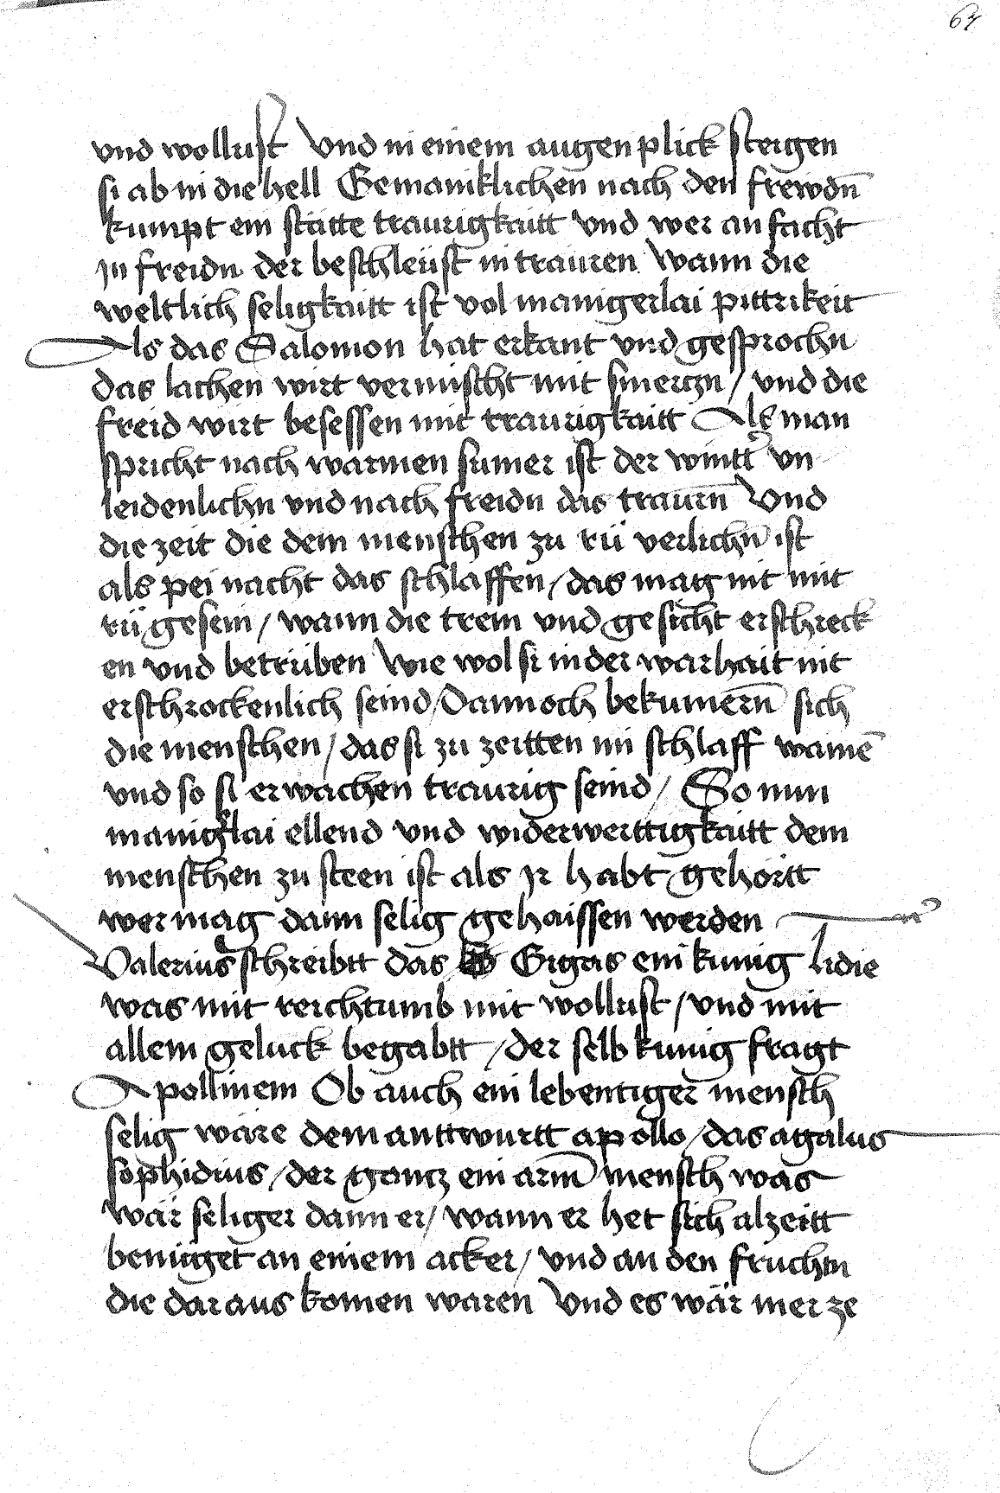 64
vnd wollust Vnd in einem augen plick steigen
si ab in die hell Gemainklichen nach den frewdn̄
kumpt ein stätte traurigkaitt Vnd wer an facht
In freidn der beschleüst in trauren Wann die
weltlich seligkaitt ist vol manigerlai pittrikeit
Als das Salomon hat erkant vnd gesprochn
das lachen wirt vermischt mit smerczn / vnd die
freid wirt besessen mit traurigkaitt Als man
spricht nach warmen sumer ist der wintt͛ vn
leidenlichn vnd nach freidn das traurn̄ Vnd
die zeit die dem menschen zu rü verlichn̄ ist
als pei nacht das schlaffen / das mag nit mit
rü gesein / wann die trem vnd gesicht erschreck
en vnd betrüben Wie wol si in der warhait nit
erschrockenlich seind / Dannoch bekumērn̄ sich
die menschen / das si zu zeitten im schlaff wainē
vnd so si erwachen traurig seind / So nun
manig͛lai ellend vnd widerwerttigkaitt dem
menschen zu steen ist als Ir habt gehörtt
wer mag dann selig gehaissen werden
Valerius schreibtt das Gigas ein kunig Lidie
was mit reichtumb mit wollust / vnd mit
allem geluck begabtt / der selb kunig fragt
Apollinem Ob auch ein lebentiger mensch
selig wäre dem anttwurtt apollo / das agalus
sophidius / der gancz ein arm̄ mensch was
wär seliger dann er / wann er het sich alzeitt
benüget an einem acker / vnd an den fruchtn
die dar aus komen waren Vnd es wär mer ze